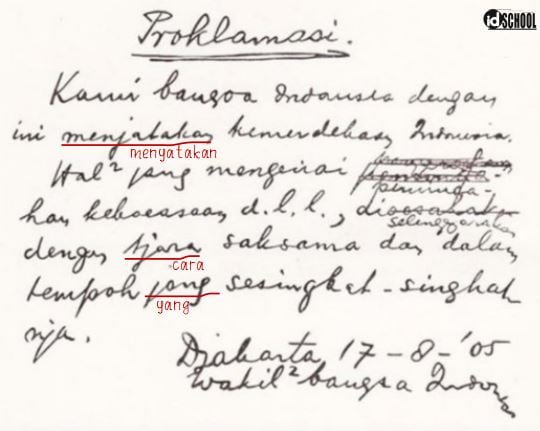 idSCHOOL
Proklamasi.
Kami bangsa Indonesia dengan
ini menjatakan kemerdekaan Indonesia.
menyatakan
Hal² jang mengenai
peminda-
han kekoeasaan d.l.l.,
selenggarakan
dengan tjara saksama dan dalam
cara
tempoh jang sesingkat-singkat
yang
nja.
Djakarta 17 - 8 - '05
Wakil² bangsa Indonesia